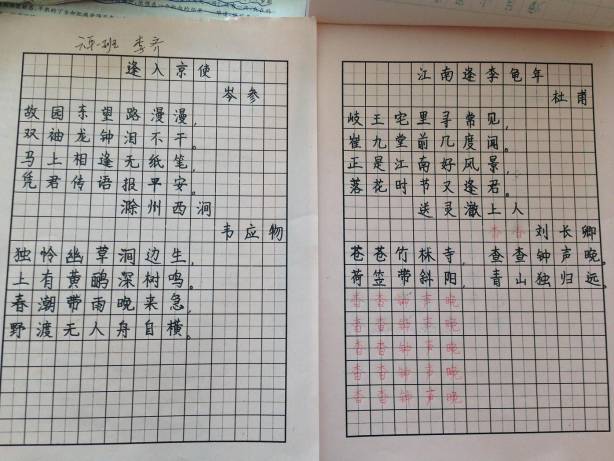 逢入京使
岑参
故园东望路漫漫，
双袖龙钟泪不干。
马上相逢无纸笔，
凭君传语报平安。
滁州西涧
韦应物
独怜幽草涧边生，
上有黄鹂深树鸣。
春潮带雨晚来急，
野渡无人舟自横。
江南逢李龟年
杜甫
岐王宅里寻常见，
崔九堂前几度闻。
正是江南好风景，
落花时节又逢君。
送灵澈上人
杳杳 刘长卿
苍苍竹林寺，查查钟声晚。
荷笠带斜阳，青山独归远。
杳杳钟声晚
杳杳钟声晚
杳杳钟声晚
杳杳钟声晚
杳杳钟声晚